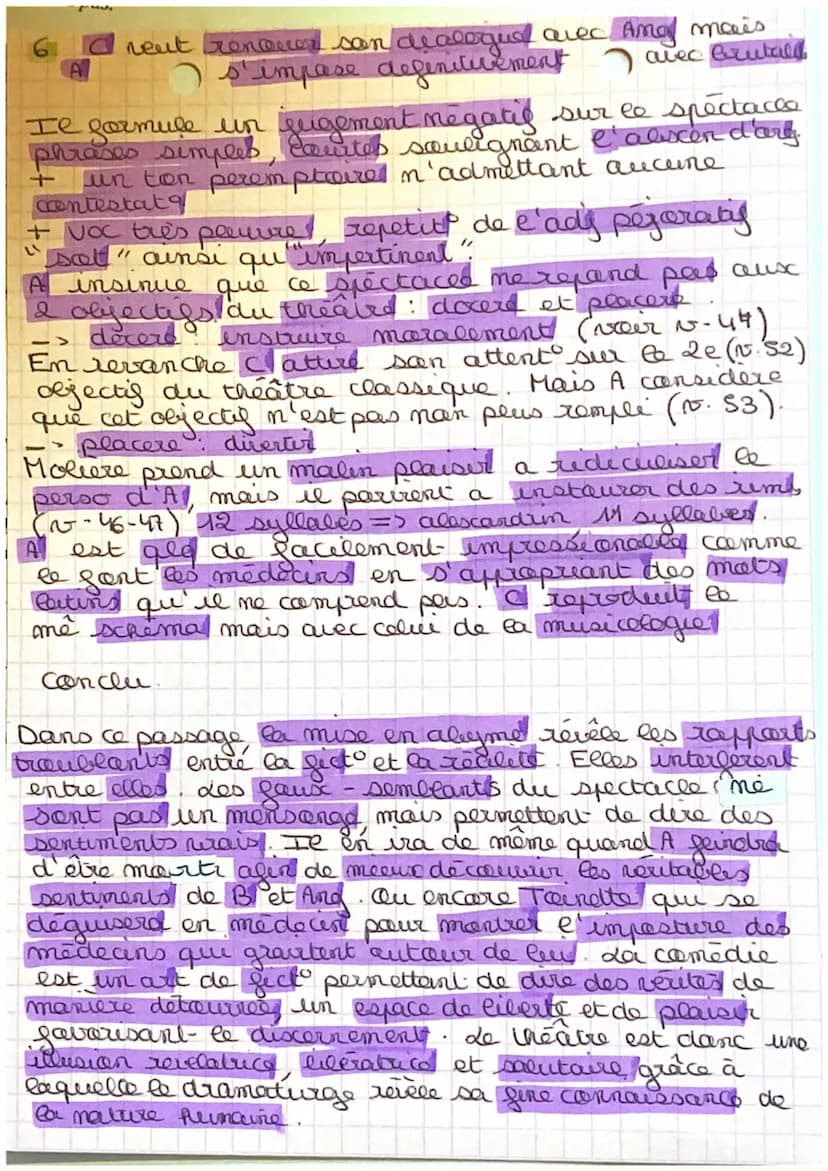 6 C veut renouer son dialogue avec Ang mais
A s'impose définitivement avec brutalité
Il formule un jugement négatif sur le spectacle
phrases simples, courtes soulignant l'abscen d'arg
+ un ton peremptoire n'admettant aucune
contestat°
+ voc très pauvre, repetit° de l'adj péjoratif
"sot" ainsi qu'"impertinent".
A insinue que ce spectacle ne repond pas aux
2 objectifs du théâtre : docere et placere.
-> docere : instruire moralement (voir v-44)
En revanche C attire son attent° sur le 2e (v.52)
objectif du théâtre classique. Mais A considère
que cet objectif n'est pas non plus rempli (v. 53).
-> placere : divertir
Molière prend un malin plaisir a ridiculiser le
perso d'A, mais il parvient a instaurer des rimes
(v-46-47) 12 syllabes => alexandrin 11 syllabes.
A est qlq de facilement impressionable comme
le font les médecins en s'appropriant des mots
latins qu'il ne comprend pas. C reproduit le
mê schéma mais avec celui de la musicologie
Conclu.
Dans ce passage, la mise en abyme révèle les rapports
troublants entre la fict° et la réalité. Elles interferent
entre elles. Les faux-semblants du spectacle ne
sont pas un mensonge mais permettent de dire des
sentiments vrais. Il en ira de même quand A feindra
d'être mort afin de mieux découvrir les véritables
sentiments de B et Ang. Ou encore Toinette qui se
déguisera en médecin pour montrer l'imposture des
médecins qui gravitent autour de lui. La comédie
est un art de fict° permettant de dire des vérités de
manière détournée, un espace de liberté et de plaisir
favorisant le discernement. Le théâtre est donc une
illusion révélatrice, libératrice et salutaire grâce à
laquelle le dramaturge révèle sa fine connaissance de
la nature humaine.